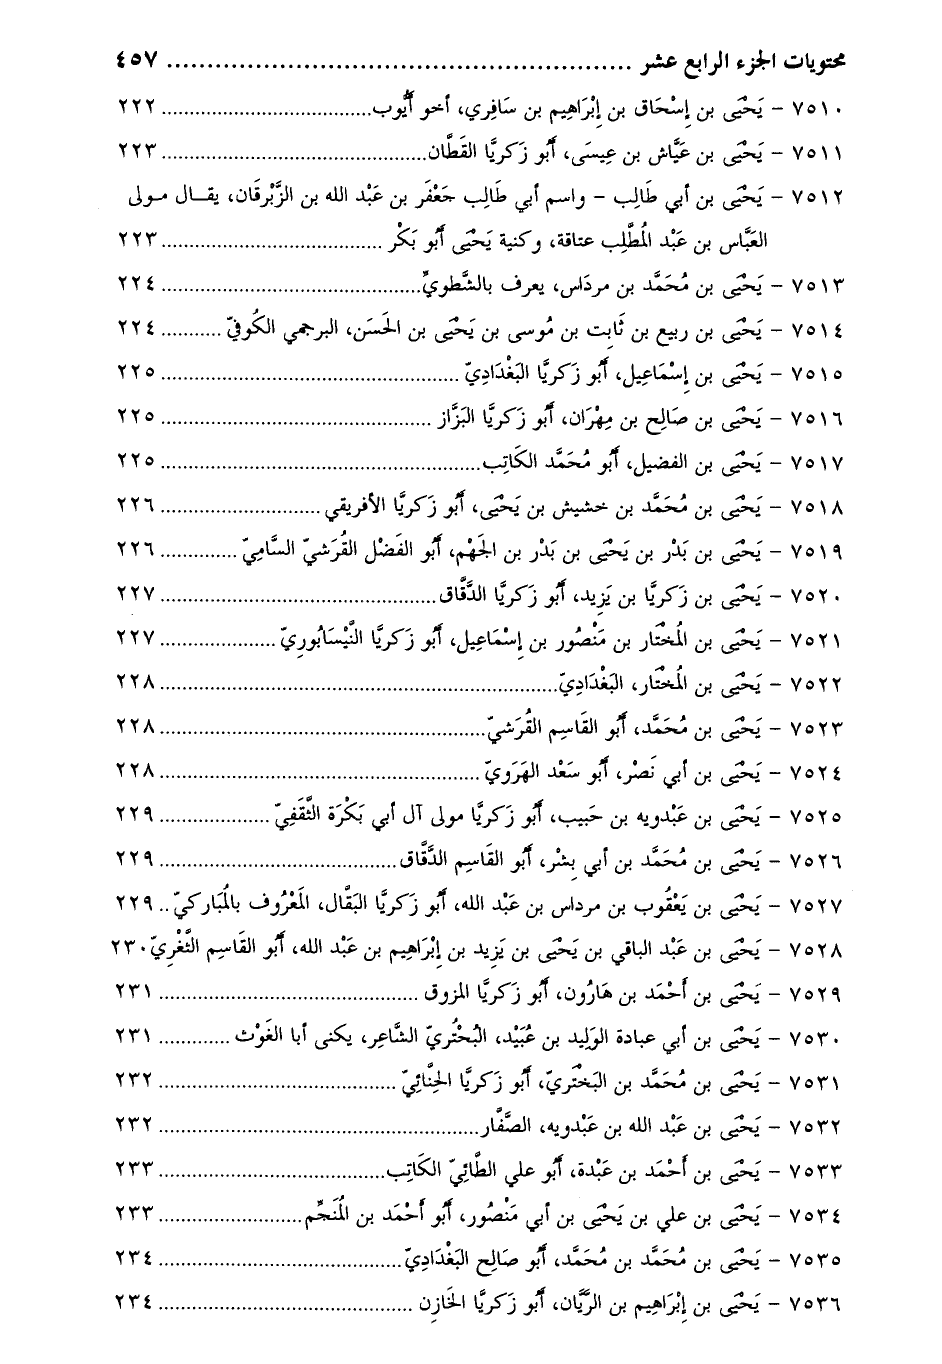 محتويات الجزء الرابع عشر ........................................................ ٤٥٧
٧٥١٠ - يَحْيَى بن إِسْحَاق بن إِبْرَاهِيم بن سَافِري، أخو أَيُّوب..................................... ٢٢٢
٧٥١١ - يَحْيَى بن عَيَّاش بن عِيسَى، أَبُو زَكريَّا القَطَّان............................................... ٢٢٣
٧٥١٢ - يَحْيَى بن أبي طَالِب - واسم أبي طَالِب جَعْفَر بن عَبْد الله بن الزِّبْرِقَان، يقـال مـولى
العَبَّاس بن عَبْد المُطَّلِب عتاقة، وكنية يَحْيَى أَبُو بَكْر ....................................... ٢٢٣
٧٥١٣ - يَحْيَى بن مُحَمَّد بن مردَاس، يعرف بالشَّطويِّ.............................................. ٢٢٤
٧٥١٤ - يَحْيَى بن ربيع بن ثَابِت بن مُوسى بن يَحْيَى بن الحَسَن، البرجمي الكُوفيّ ........... ٢٢٤
٧٥١٥ - يَحْيَى بن إِسْمَاعِيل، أَبُو زَكريَّا البَغْدَادِيّ ..................................................... ٢٢٥
٧٥١٦ - يَحْيَى بن صَالِح بن مِهْرَان، أَبُو زَكريَّا البَزَّاز ................................................ ٢٢٥
٧٥١٧ - يَحْيَى بن الفضيل، أَبُو مُحَمَّد الكَاتِب......................................................... ٢٢٥
٧٥١٨ - يَحْيَى بن مُحَمَّد بن خشيش بن يَحْيَى، أَبُو زَكريَّا الأفريقي ............................ ٢٢٦
٧٥١٩ - يَحْيَى بن بَدْر بن يَحْيَى بن بَدْر بن الجَهْم، أَبُو الفَضْل القُرَشيّ السَّامِيّ .............. ٢٢٦
٧٥٢٠ - يَحْيَى بن زَكريَّا بن يَزِيد، أَبُو زَكريَّا الدَّقَّاق................................................. ٢٢٧
٧٥٢١ - يَحْيَى بن المُخْتَار بن مَنْصُور بن إِسْمَاعِيل، أَبُو زَكريَّا النَّيْسَابُورِيّ ..................... ٢٢٧
٧٥٢٢ - يَحْيَى بن المُخْتَار، البَغْدَادِيّ....................................................................... ٢٢٨
٧٥٢٣ - يَحْيَى بن مُحَمَّد، أَبُو القَاسِم القُرَشيّ.......................................................... ٢٢٨
٧٥٢٤ - يَحْيَى بن أبي نَصْر، أَبُو سَعْد الهَرَويّ ......................................................... ٢٢٨
٧٥٢٥ - يَحْيَى بن عَبْدويه بن حَبِيب، أَبُو زَكريَّا مولى آل أبي بَكْرَة الثَّقَفِيّ .................... ٢٢٩
٧٥٢٦ - يَحْيَى بن مُحَمَّد بن أبي بِشْر، أَبُو القَاسِم الدَّقَّاق.......................................... ٢٢٩
٧٥٢٧ - يَحْيَى بن يَعْقُوب بن مرداس بن عَبْد الله، أَبُو زَكريَّا البَقَّال، المَعْرُوف بالمُبَاركيّ.. ٢٢٩
٧٥٢٨ - يَحْيَى بن عَبْد الباقي بن يَحْيَى بن يَزِيد بن إِبْرَاهِيم بن عَبْد الله، أَبُو القَاسِم الثَّغْرِيّ ٢٣٠
٧٥٢٩ - يَحْيَى بن أَحْمَد بن هَارُون، أَبُو زَكريَّا المزوق .............................................. ٢٣١
٧٥٣٠ - يَحْيَى بن أبي عبادة الوَلِيد بن عُبَيْد، البُحْتُريّ الشَّاعِر، يكنى أبا الغَوْث ............. ٢٣١
٧٥٣١ - يَحْيَى بن مُحَمَّد بن البَخْتَريّ، أَبُو زَكريَّا الحِنَّائِيّ.......................................... ٢٣٢
٧٥٣٢ - يَحْيَى بن عَبْد الله بن عَبْدويه، الصَّفَّار......................................................... ٢٣٢
٧٥٣٣ - يَحْيَى بن أَحْمَد بن عَبْدة، أَبُو علي الطَّائِيّ الكَاتِب........................................ ٢٣٣
٧٥٣٤ - يَحْيَى بن علي بن يَحْيَى بن أبي مَنْصُور، أَبُو أَحْمَد بن المُنَجِّم......................... ٢٣٣
٧٥٣٥ - يَحْيَى بن مُحَمَّد بن مُحَمَّد، أَبُو صَالِح البَغْدَادِيّ........................................... ٢٣٤
٧٥٣٦ - يَحْيَى بن إِبْرَاهِيم بن الرَّيَّان، أَبُو زَكريَّا الخَازِن ............................................. ٢٣٤